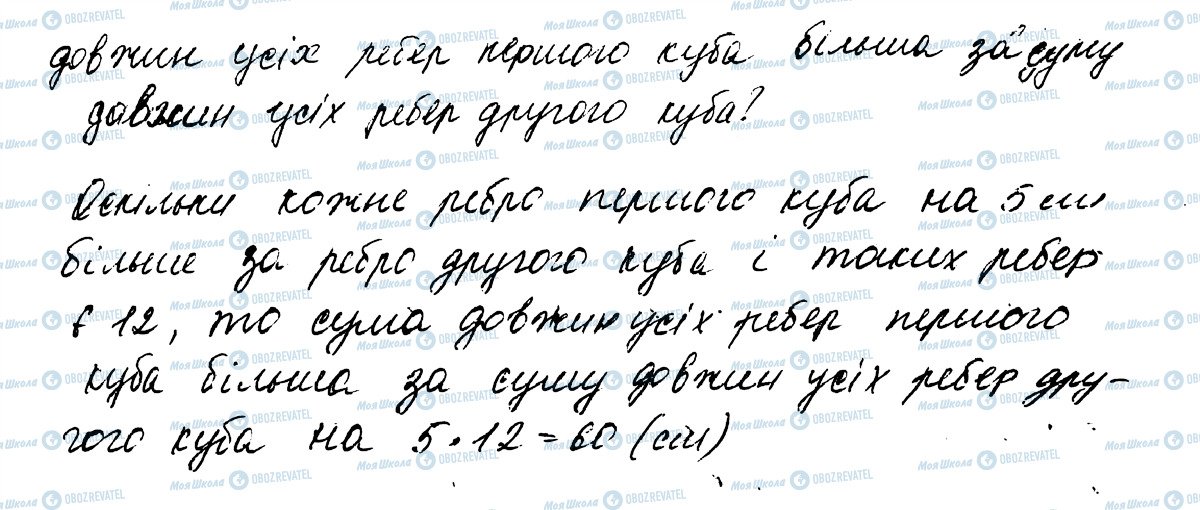 довжин усіх ребер першого куба більша за суму
довжин усіх ребер другого куба?
Оскільки кожне ребро першого куба на 5 см
більше за ребро другого куба і таких ребер
є 12, то сума довжин усіх ребер першого
куба більша за суму довжин усіх ребер дру-
гого куба на 5 · 12 = 60 (см)